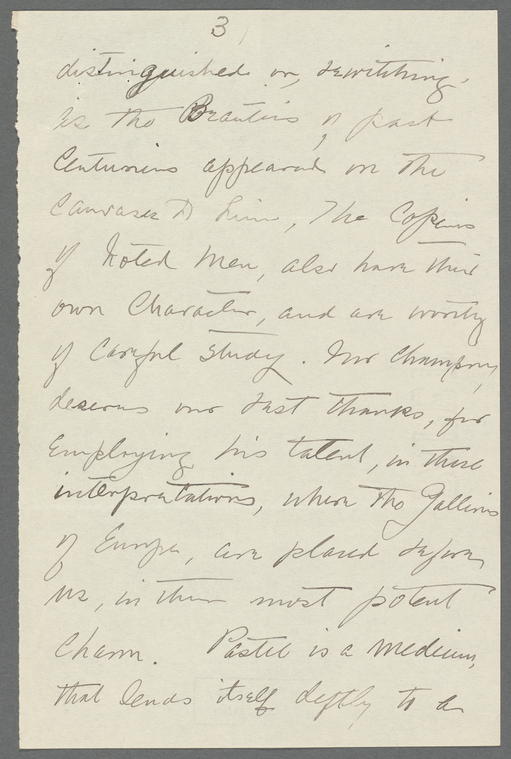 3
distinguished or, bewitching,
as the Beauties of past
Centuries appeared on the
Canvases to him, The Copies
of Noted Men, also have their
own Character, and are worthy
of Careful study. Mr Champney
deserves our best thanks, for
Employing his talent, in these
interpretations, where the Galleries
of Europe, are placed before
us, in their most potent
Charm. Pastel is a Medium,
that lends itself deftly to a